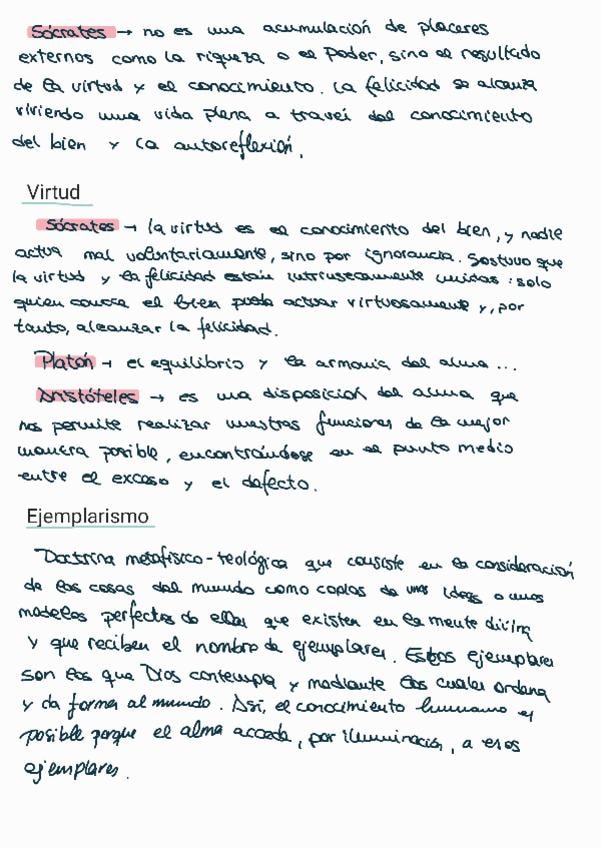 Sócrates → no es una acumulación de placeres
externos como la riqueza o el poder, sino el resultado
de la virtud y el conocimiento. La felicidad se alcanza
viviendo una vida plena a través del conocimiento
del bien y la autoreflexión.
Virtud
Sócrates → la virtud es el conocimiento del bien, y nadie
actua mal voluntariamente, sino por ignorancia. Sostuvo que
la virtud y la felicidad están intrinsecamente unidas: solo
quien conoce el bien puede actuar virtuosamente y, por
tanto, alcanzar la felicidad.
Platón → el equilibrio y la armonia del alma...
Aristóteles → es una disposición del alma que
nos permite realizar nuestras funciones de la mejor
manera posible, encontrándose en el punto medio
entre el exceso y el defecto.
Ejemplarismo
Doctrina metafísico-teológica que consiste en la consideración
de las cosas del mundo como copias de unas ideas o unos
modelos perfectos de ellas que existen en la mente divina
y que reciben el nombre de ejemplares. Estos ejemplares
son los que Dios contempla y mediante los cuales ordena
y da forma al mundo. Así, el conocimiento humano es
posible porque el alma accede, por iluminación, a esos
ejemplares.